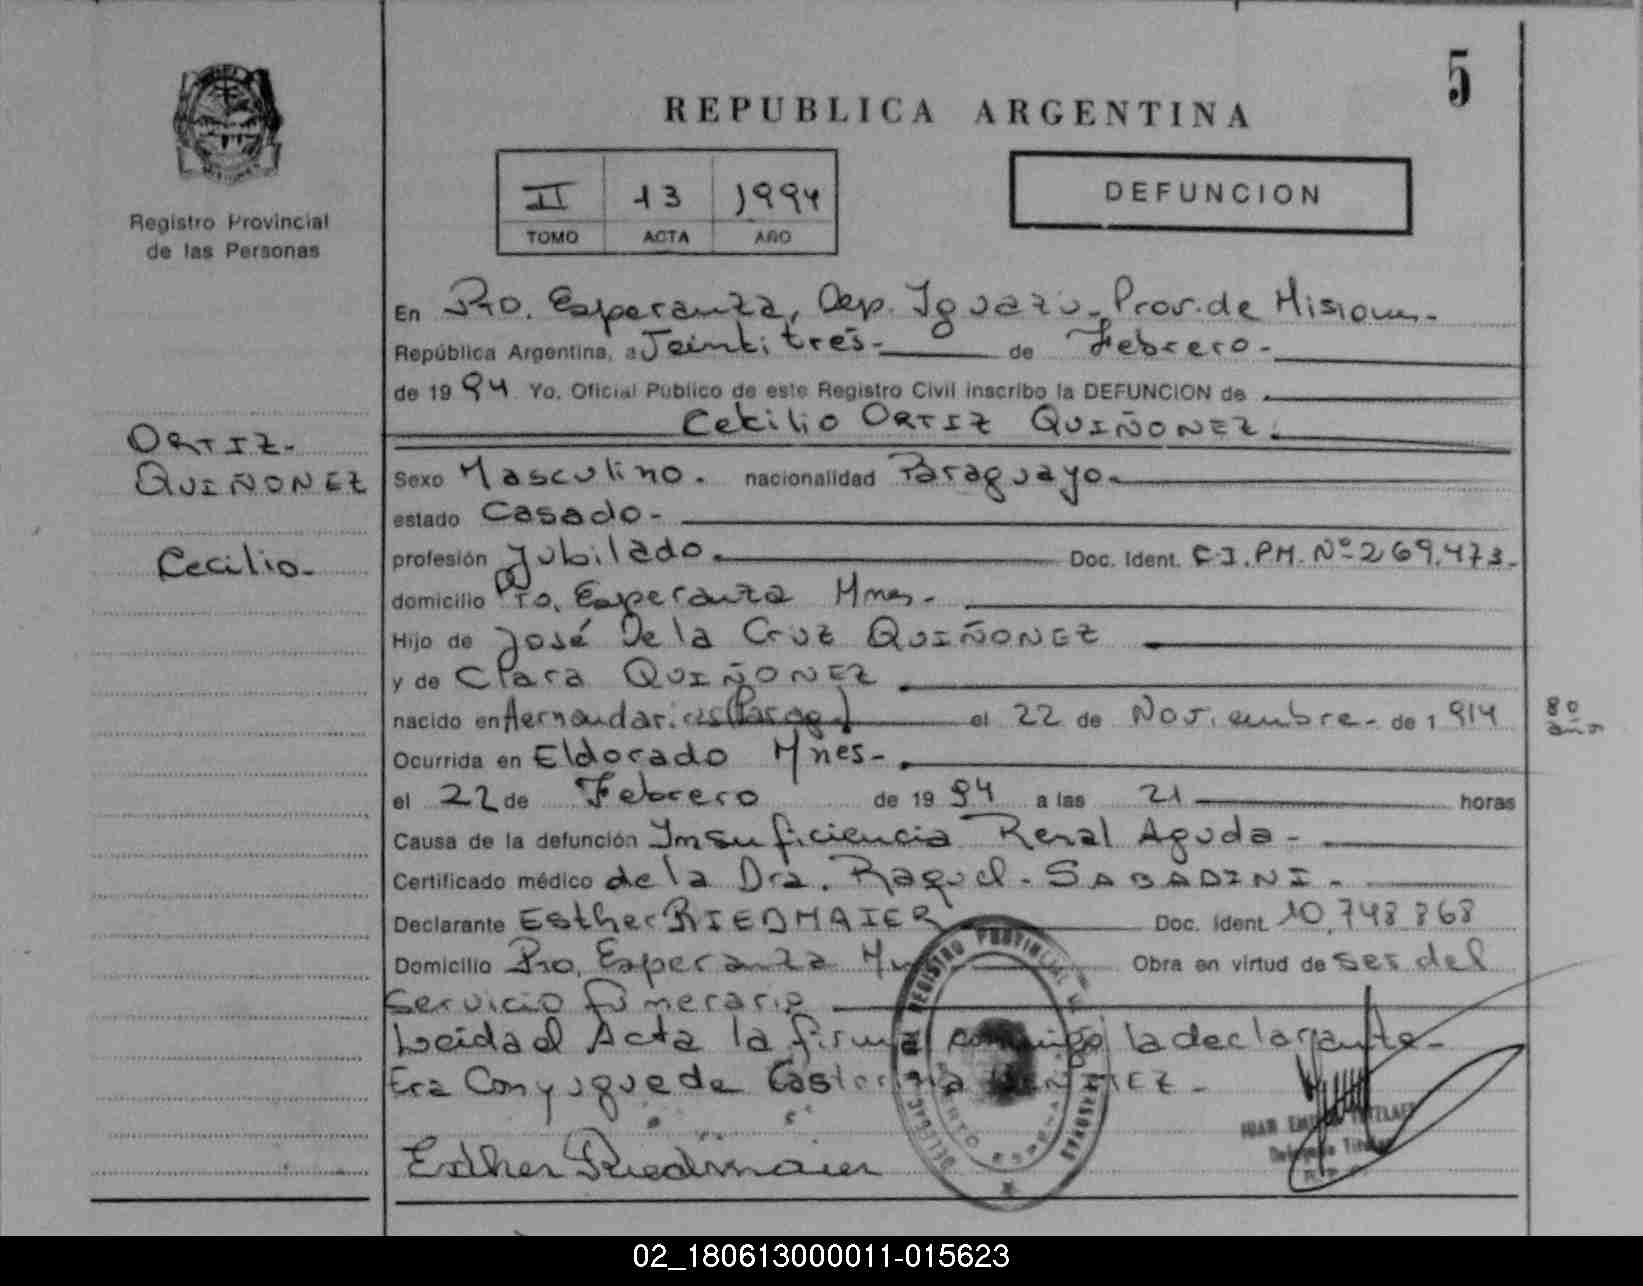 5
REPUBLICA ARGENTINA
II 13 1994
TOMO ACTA AÑO
DEFUNCION
Registro Provincial
de las Personas
ORTIZ-
QUIÑONEZ
Cecilio-
En Pto. Esperanza, Dep. Iguazu-Prov. de Misiones-
República Argentina, a Veintitres- de Febrero-
de 1994 Yo. Oficial Público de este Registro Civil inscribo la DEFUNCION de
Cecilio ORTIZ QUIÑONEZ.
Sexo Masculino. nacionalidad Paraguayo.
estado Casado-
profesión Jubilado. Doc. Ident. C.I.PM.Nº-269.473-
domicilio Pto. Esperanza Mnes-
Hijo de José De la Cruz QUIÑONEZ
y de Clara QUIÑONEZ
nacido en Hernandarias (Parag.) el 22 de Noviembre- de 1914
80
años
Ocurrida en Eldorado Mnes-
el 22 de Febrero de 1994 a las 21 horas
Causa de la defunción Insuficiencia Renal Aguda-
Certificado médico de la Dra. Raquel-SABADINI-
Declarante Esther RIEDMAIER Doc. Ident. 10.748 868
Domicilio Pto. Esperanza Obra en virtud de ser del
Servicio funerario
Leida el Acta la firma conmigo la declarante-
Era Conyugue de
Esther Riedmaier
REGISTRO PROVINCIAL
PERSONAS
JUAN
02_180613000011-015623